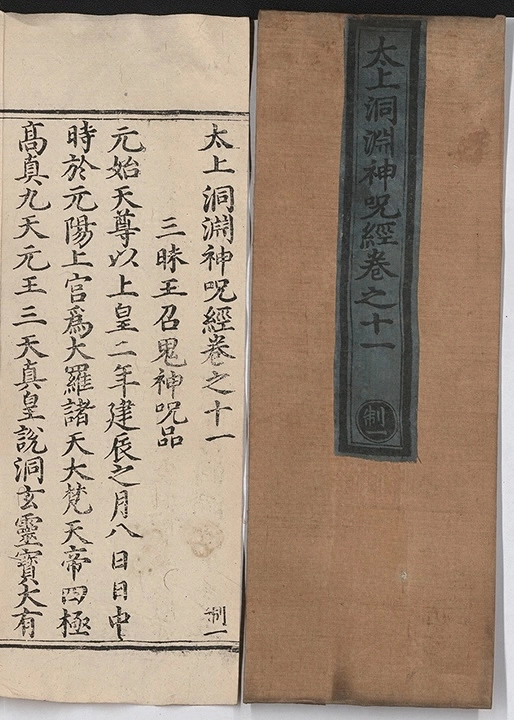 太上洞淵神呪經卷之十一
制一
太上洞淵神呪經卷之十一
制一
三昧王召鬼神呪品
元始天尊以上皇二年建辰之月八日日中
時於元陽上宮爲大羅諸天大梵天帝四極
高真九天元王三天真皇說洞玄靈寶大有